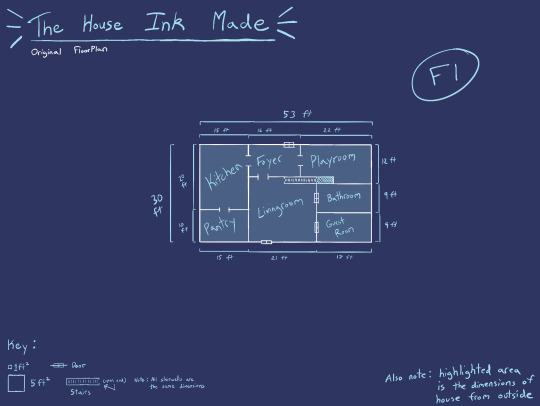 The House Ink Made
Original FloorPlan
F1
53 ft
15 ft 16 ft 22 ft
Kitchen
Foyer
Playroom
20 ft
12 ft
30 ft
Livingroom
Bathroom
9 ft
Pantry
10 ft
Guest Room
9 ft
15 ft 21 ft 17 ft
Key:
1ft² Door
5 ft² Stairs
Note: All stairwells are
the same dimensions
Also note: highlighted area
is the dimensions of
house from outside